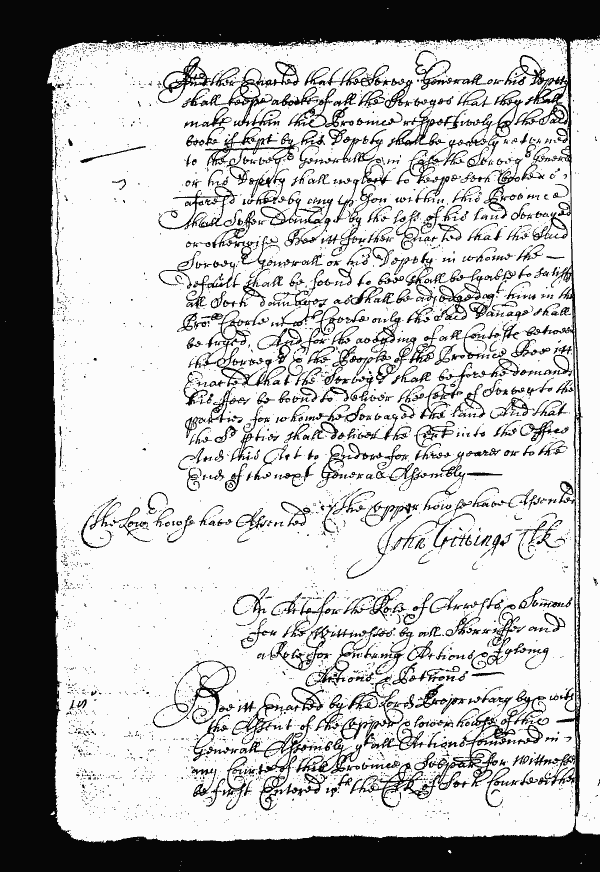 further Enacted that the Survey.r Generall or his Deputy
shall keepe a booke of all the Surveyes that they shall
make within this Province respectively & the Said
booke if kept by his Deputy shall be yearly returned
to the Survey.r Generall & in Case the Survey.r Generall
or his Deputy shall neglect to keepe such Booke as
aforesd whereby any pson within this Province
shall suffer Damage by the loss of his land Surveyed
or otherwise Bee itt further Enacted that the Said
Survey.r Generall or his Deputy in whome the
default shall be found to bee shall be lyable to satisfy
all Such damages as shall be adjudged agt him in the
Pro:ll Courte in wch Courte only the Said Damage shall
be tryed. And for the avoyding of all Contests between
the Survey.rs & the People of the Province Bee itt
Enacted that the Survey.rs shall before he demand
his ffees be bound to deliver the Cert of Survey to the
Parties for whome he Surveyed the land And that
the Sd pties shall deliver the Cert into the Office
And this Act to Endure for three yeares or to the
End of the next Generall Assembly
The Lower howse have Assented The Upper howse have Assented
John Gittings Clk
An Acte for the Rule of Arrests & Somons
for the Wittnesses by all Sherriffes and
a Rule for Entring Actions & fyleing
Actions & Petitions
Bee itt Enacted by the Lord Proprietary by & with
the Assent of the Upper & lower howse of this
Generall Assembly yt all Actions Comenced in
any Courte of this Province & Subpenas for Wittnesses
be first Entered wth the Clk of Such Courte either